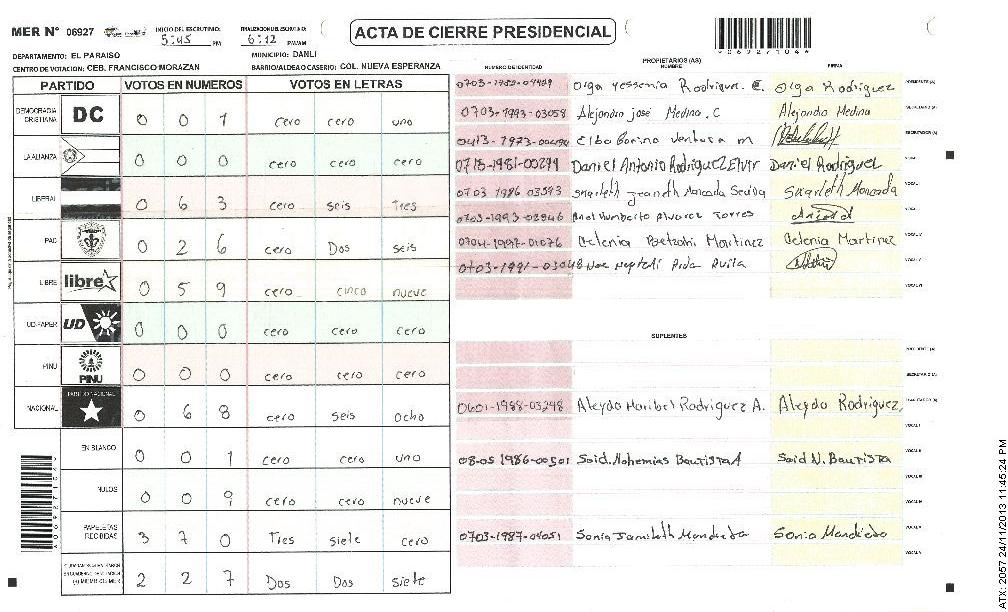 MER Nº 06927 INICIO DEL ESCRUTINIO: 5:45 PM FINALIZACION DEL ESCRUTINIO: 6:12 PM/AM
ACTA DE CIERRE PRESIDENCIAL
DEPARTAMENTO: EL PARAISO MUNICIPIO: DANLI
CENTRO DE VOTACION: CEB. FRANCISCO MORAZAN BARRIO/ALDEA O CASERIO: COL. NUEVA ESPERANZA
PARTIDO VOTOS EN NUMEROS VOTOS EN LETRAS
DEMOCRACIA CRISTIANA DC 0 0 1 cero cero uno
LA ALIANZA 0 0 0 cero cero cero
LIBERAL 0 6 3 cero seis Tres
PAC 0 2 6 cero Dos seis
LIBRE libre 0 5 9 cero cinco nueve
UD-FAPER UD 0 0 0 cero cero cero
PINU PINU 0 0 0 cero cero cero
NACIONAL PARTIDO NACIONAL 0 6 8 cero seis Ocho
EN BLANCO 0 0 1 cero cero uno
NULOS 0 0 9 cero cero nueve
PAPELETAS RECIBIDAS 3 7 0 Tres siete cero
2 2 7 Dos Dos siete
PROPIETARIOS (AS)
NUMERO DE IDENTIDAD NOMBRE FIRMA
Olga Yessenia Rodrigue. E. Olga Rodriguez PRESIDENTE (A)
0703-1993-03058 Alejandro josé Medina. C Alejandro Medina SECRETARIO (A)
ventura m ESCRUTADOR (A)
0713-1981-00299 Daniel Antonio Rodriguez Elvir Daniel Rodriguez
0703 1986 03593 Skarleth Jeaneth Moncada Skarleth Moncada
0703-1993-02846 Ariel Humberto Alvarez Torres
0704-1997-01076 Celenia Betzabi Martinez Celenia Martinez
0703-1991-03048 Avila
SUPLENTES
PRESIDENTE (A)
SECRETARIO (A)
0601-1988-03248 Aleyda Maribel Rodriguez A. Aleyda Rodriguez. ESCRUTADOR (A)
VOCAL I
08-05 1986-00501 Said. Nohemias Bautista A Said N. Bautista VOCAL II
VOCAL III
VOCAL IV
0703-1987-04051 Sonia VOCAL V
* 0 6 9 2 7 1 0 4 *
ATX: 2057 24/11/2013 11:45:24 PM